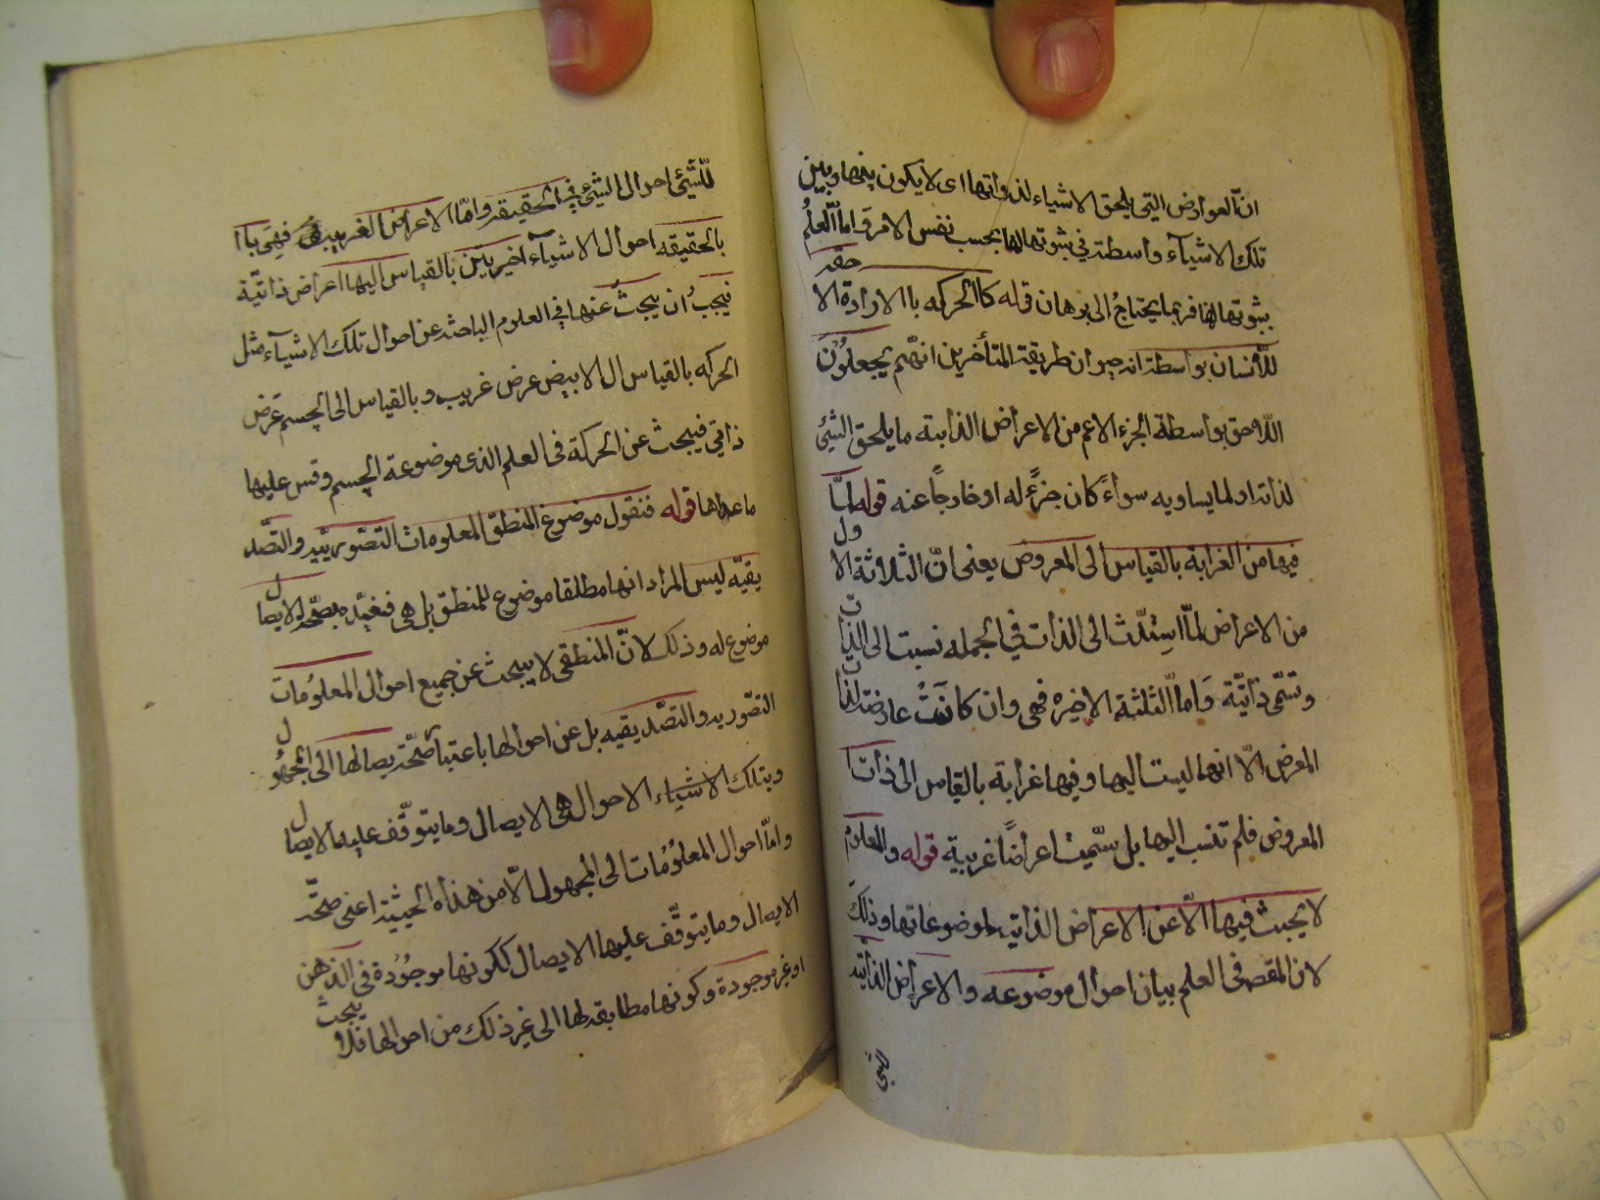 ان العوارض التي يلحق الاشياء لذواتها اى لا يكون بينها وبين
تلك الاشيآء واسطة في ثبوتها لها بحسب نفس الامر واما العلم
بثبوتها لها فربما يحتاج الى برهان قوله كا الحركه با الارادة الا حقه
للأنسان بواسطة انه حيوان طريقة المتأخرين انهم يجعلون
اللاحق بواسطة الجزء الاعم من الاعراض الذاتية ما يلحق الشئ
لذاته او لما يساويه سواءً كان جزءً له او خارجاً عنه قوله لما
فيها من الغرابة بالقياس الى المعروض يعنى انّ الثلاثة الاول
من الاعراض لمّا استندت الى الذات في الجمله نسبت الى الذات
وتسمى ذاتيّة وَاما الثلثة الاخيره فهى وان كانت عارضة لذات
المعرض الّا انها ليست اليها وفيها غرابة بالقياس الى ذات
المعروض فلم تنسب اليها بل سمّيت اعراضاً غريبة قوله والعلوم
لا يجبث فيها الّا عن الاعراض الذاتيه لموضوعاتها وذلك
لان المقصد فى العلم بيان احوال موضوعه والاعراض الذاتيه
للشئ
للشئ احوال الشئ في الحقيقه وامّا الاعراض الغريبه فهى باا
بالحقيقه احوال الاشيآء اخير بتين بالقياس اليها اعراض ذاتيّة
فيجبُ ان يبحث عنها في العلوم الباحثه عن احوال تلك الاشيآء مثل
الحركه بالقياس ال الابيض عرض غريب وبالقياس الى الجسم عرض
ذاتي فيبحث عن الحركة فى العلم الذى موضوعة الجسم وقس عليها
ما عداها قوله فنقول موضوع المنطق المعلومات التصوريّيه والتصّد
يقيّه ليس المراد انها مطلقا موضوع للمنطق بل هى مقيّده بصحّه الايصال
موضوع له وذلك لانّ المنطقى لا يبحث عن جميع احوال المعلومات
التصّوريه والتصّديقيه بل عن احوالها باعتبار صحّة يصالها الى المجهول
وبتلك الاشياء الاحوال هى الايصال وما يتوقّف عليه الايصال
وامّا احوال المعلومات الى المجهول الّا من هذه الحيثية اعنى صحّه
الايصال وما يتوقّف عليها الايصال ككونها موجودة فى الذهن
او غير موجودة وكونها مطابقه لها الى غير ذلك من احوالها فلا يبحث